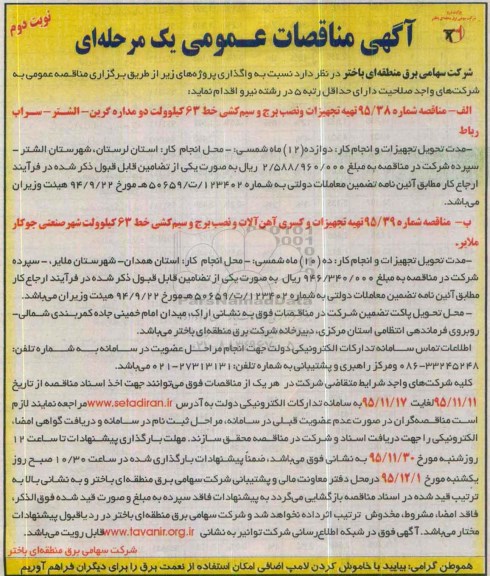 نوبت دوم
آگهی مناقصات عمومی یک مرحله‌ای
شرکت سهامی برق منطقه‌ای باختر در نظر دارد نسبت به واگذاری پروژه‌های زیر از طریق برگزاری مناقصه عمومی به
شرکت‌های واجد صلاحیت دارای حداقل رتبه ۵ در رشته نیرو اقدام نماید:
الف- مناقصه شماره ۹۵/۳۸ تهیه تجهیزات ونصب برج و سیم‌کشی خط ۶۳ کیلوولت دو مداره گرین- الشتر- سراب
رباط
-مدت تحویل تجهیزات و انجام کار: دوازده (۱۲) ماه شمسی: - محل انجام کار: استان لرستان، شهرستان الشتر -
سپرده شرکت در مناقصه به مبلغ ۲/۵۸۸/۹۶۰/۰۰۰ ریال به صورت یکی از تضامین قابل قبول ذکر شده در فرآیند
ارجاع کار مطابق آئین نامه تضمین معاملات دولتی به شماره ۱۲۳۴۰۲/ت۵۰۶۵۹هـ مورخ ۹۴/۹/۲۲ هیئت وزیران
می‌باشد.
ب- مناقصه شماره ۹۵/۳۹ تهیه تجهیزات و کسری آهن آلات و نصب برج و سیم‌کشی خط ۶۳ کیلوولت شهر صنعتی جوکار
ملایر.
-مدت تحویل تجهیزات و انجام کار: ده (۱۰) ماه شمسی: - محل انجام کار: استان همدان- شهرستان ملایر، - سپرده
شرکت در مناقصه به مبلغ ۹۴۶/۳۴۰/۰۰۰ ریال به صورت یکی از تضامین قابل قبول ذکر شده در فرآیند ارجاع کار
مطابق آئین نامه تضمین معاملات دولتی به شماره ۱۲۳۴۰۲/ت۵۰۶۵۹هـ مورخ ۹۴/۹/۲۲ هیئت وزیران می‌باشد.
- محل تحویل پاکت تضمین شرکت در مناقصات فوق به نشانی اراک، میدان امام خمینی جاده کمربندی شمالی-
روبروی فرماندهی انتظامی استان مرکزی، دبیرخانه شرکت برق منطقه‌ای باختر می‌باشد.
اطلاعات تماس سامانه تدارکات الکترونیکی دولت جهت انجام مراحل عضویت در سامانه به شماره تلفن:
۰۸۶-۳۳۲۴۵۲۴۸ ومرکز راهبری و پشتیبانی به شماره تلفن: ۲۷۳۱۳۱۳۱-۰۲۱ می‌باشد.
کلیه شرکت‌های واجد شرایط متقاضی شرکت در هر یک از مناقصات فوق می‌توانند جهت اخذ اسناد مناقصه از تاریخ
۹۵/۱۱/۱۱ لغایت ۹۵/۱۱/۱۷ به سامانه تدارکات الکترونیکی دولت به آدرس www.setadiran.ir مراجعه نمایند لازم
است مناقصه‌گران در صورت عدم عضویت قبلی در سامانه، مراحل ثبت نام در سامانه و دریافت گواهی امضاء
الکترونیکی را جهت دریافت اسناد و شرکت در مناقصه محقق سازند. مهلت بارگذاری پیشنهادات تا ساعت ۱۲
روز شنبه مورخ ۹۵/۱۱/۳۰ به نشانی فوق می‌باشد، ضمناً پیشنهادات بارگذاری شده در ساعت ۱۰/۳۰ صبح روز
یکشنبه مورخ ۹۵/۱۲/۱ در محل دفتر معاونت مالی و پشتیبانی شرکت سهامی برق منطقه‌ای باختر و به نشانی بالا به
ترتیب قید شده در اسناد مناقصه بازگشایی می‌گردد به پیشنهادات فاقد سپرده به مبلغ و صورت قید شده فوق الذکر،
فاقد امضا، مشروط، مخدوش ترتیب اثر داده نخواهد شد و شرکت سهامی برق منطقه‌ای باختر در رد یا قبول پیشنهادات
مختار می‌باشد. آگهی فوق در شبکه اطلاع‌رسانی شرکت توانیر به نشانی www.tavanir.org.ir قابل رویت می‌باشد.
شرکت سهامی برق منطقه‌ای باختر
هموطن گرامی: بیایید با خاموش کردن لامپ اضافی امکان استفاده از نعمت برق را برای دیگران فراهم آوریم